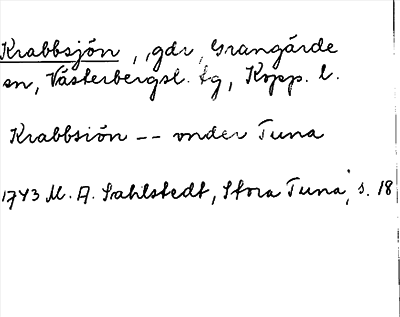 Krabbsjön, gdr, Grangärde
sn, Västerbergsl. tg, Kopp. l.
Krabbsiön -- vnder Tuna
1743 M. A. Sahlstedt, Stora Tuna, s. 18